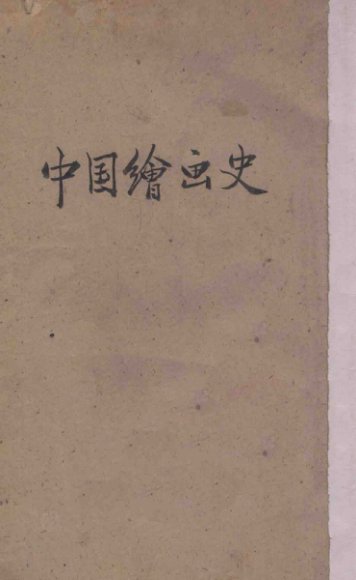 中国繪画史